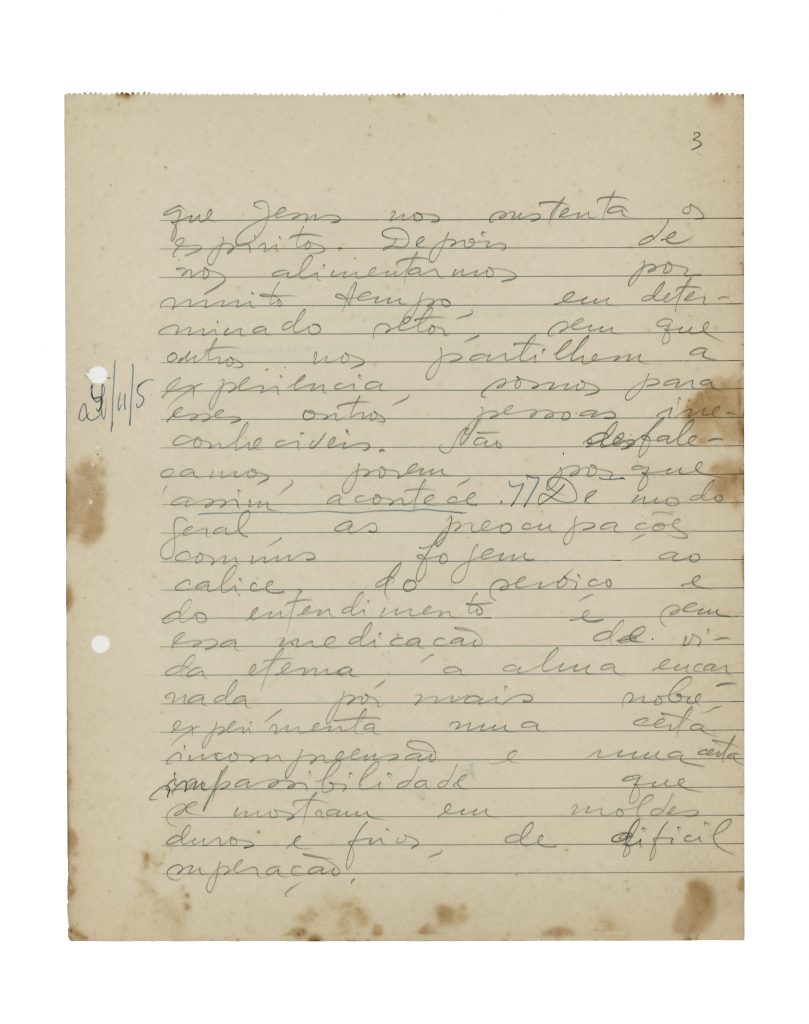 3
que Jesus nos sustenta os
espiritos. Depois de
nos alimentarmos por
muito tempo, em deter-
minado setor, sem que
outros nos partilhem a
experiencia, somos para
esses outros pessoas ine-
conheciveis. Não desfale-
çamos, porem, porque
assim acontece. De modo
geral as preocupações
comuns fojem ao
calice do serviço e
do entendimento e sem
essa medicação de vi-
da eterna a alma encar
nada por mais nobre,
experimenta uma certa
incompreensão e uma certa
impassibilidade que
se mostram em moldes
duros e frios, de dificil
superação.